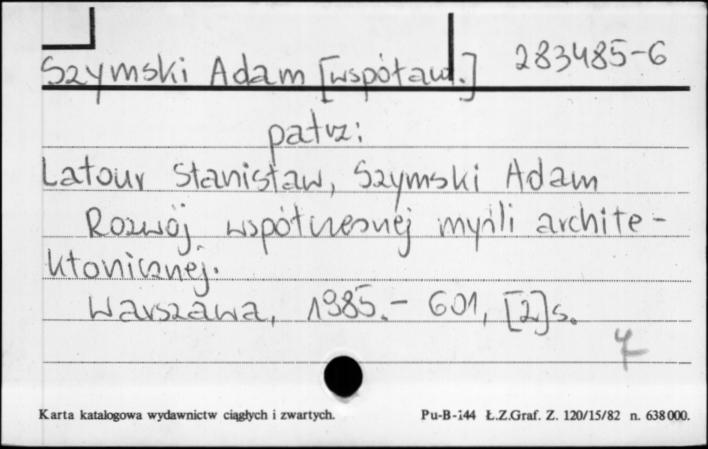 Szymski Adam [współaut.] 283485-6
patrz:
Latour Stanisław, Szymski Adam
Rozwój współczesnej myśli archite-
ktonicznej.
Warszawa, 1985.- 601, [2]s.
Karta katalogowa wydawnictw ciągłych i zwartych. Pu-B-144 Ł.Z.Graf. Z. 120/15/82 n. 638000.